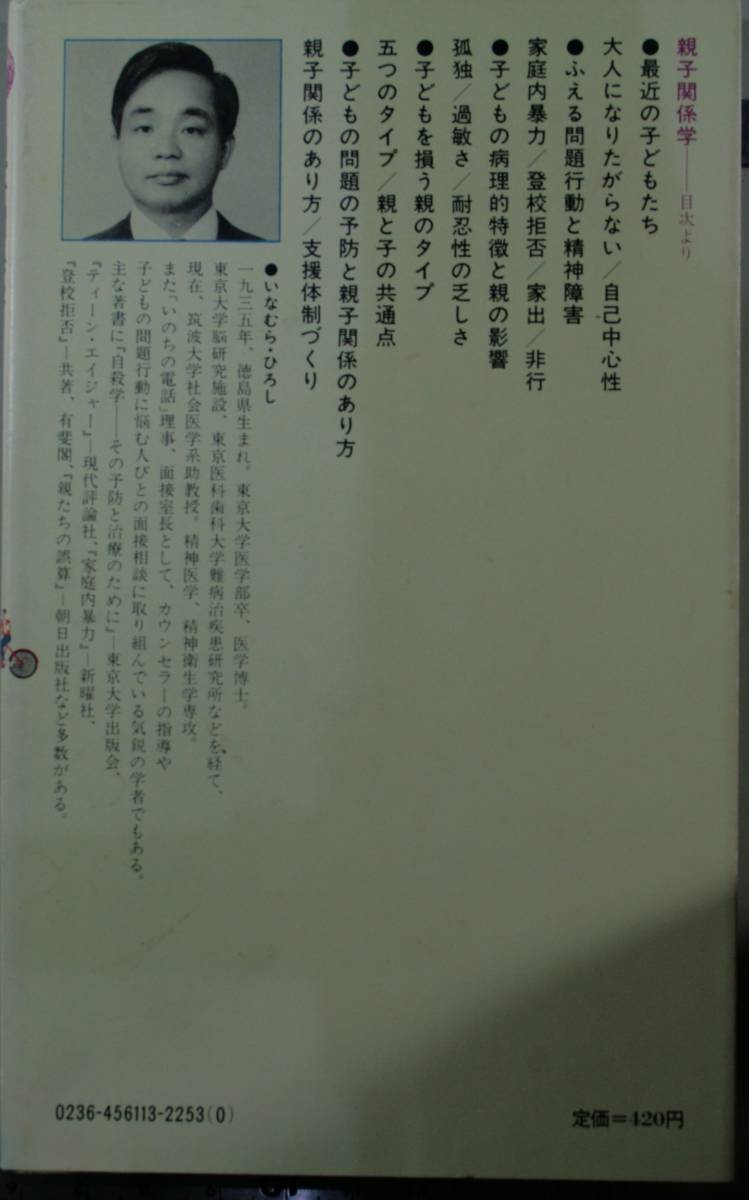 親子関係学──目次より
●最近の子どもたち
大人になりたがらない/自己中心性
●ふえる問題行動と精神障害
家庭内暴力/登校拒否/家出/非行
●子どもの病理的特徴と親の影響
孤独/過敏さ/耐忍性の乏しさ
●子どもを損う親のタイプ
五つのタイプ/親と子の共通点
●子どもの問題の予防と親子関係のあり方
親子関係のあり方/支援体制づくり
●いなむら・ひろし
一九三五年、徳島県生まれ。東京大学医学部卒、医学博士。
東京大学脳研究施設、東京医科歯科大学難病治疾患研究所などを経て、
現在、筑波大学社会医学系助教授。精神医学、精神衛生学専攻。
また「いのちの電話」理事、面接室長として、カウンセラーの指導や
子どもの問題行動に悩む人びとの面接相談に取り組んでいる気鋭の学者でもある。
主な著書に『自殺学──その予防と治療のために』─東京大学出版会、
『ティーン・エイジャー』─現代評論社、『家庭内暴力』─新曜社、
『登校拒否』─共著、有斐閣、『親たちの誤算』─朝日出版社など多数がある。
0236-456113-2253(0)
定価=420円